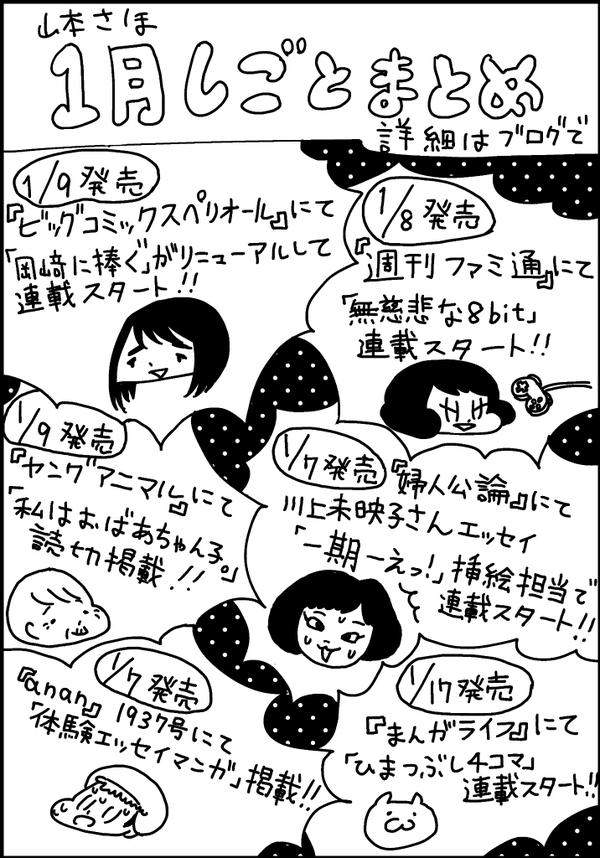 山本さほ
1月しごとまとめ
詳細はブログで
1/9発売
『ビッグコミックスペリオール』にて
「岡崎に捧ぐ」がリニューアルして
連載スタート!!
1/8発売
『週刊ファミ通』にて
「無慈悲な8bit」
連載スタート!!
1/9発売
『ヤングアニマル』にて
「私はおばあちゃん子。」
読切掲載!!
1/7発売
『婦人公論』にて
川上未映子さんエッセイ
「一期一えっ!」挿絵担当で
連載スタート!!
1/7発売
『anan』1937号にて
「体験エッセイマンガ」掲載!!
1/17発売
『まんがライフ』にて
「ひまつぶし4コマ」
連載スタート!!